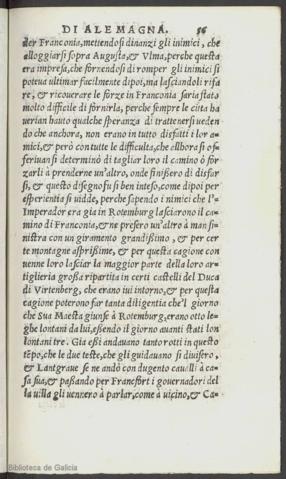 DI ALEMAGNA. 56
der Franconia, mettendosi dinanzi gli inimici, che
alloggiarsi sopra Augusta, & Vlma, perche questa
era impresa, che fornendosi di romper gli inimici si
poteua ultimar facilmente dipoi, ma lasciandoli rifa
re, & ricouerare le forze in Franconia saria stato
molto difficile di fornirla, perche sempre le citta ha
uerian hauto qualche speranza di trattenersi ueden
do che anchora, non erano in tutto disfatti i lor a=
mici, & però con tutte le difficulta, che allhora si of=
feriuan si determinò di tagliar loro il camino ò for=
zarli à prenderne un'altro, onde finissero di disfar
si, & questo disegno fu si ben inteso, come dipoi per
esperientia si uidde, perche sapendo i nimici che l'=
Imperador era gia in Rotemburg lasciarono il ca=
mino di Franconia, & ne presero un'altro à man si=
nistra con un giramento grandissimo, & per cer
te montagne asprissime, & per questa cagione con
uenne loro lasciar la maggior parte della loro ar=
tiglieria grossa ripartita in certi castelli del Duca
di Virtenberg, che erano iui intorno, & per questa
cagione poterono far tanta diligentia che'l giorno
che Sua Maestà giunse à Rotemburg, erano otto le=
ghe lontani da lui, essendo il giorno auanti stati lon
lontani tre. Gia essi andauano tanto rotti in questo
tẽpo, che le due teste, che gli guidauano si diuisero,
& Lantgraue se ne andò con dugento caualli à ca=
sa sua, & passando per Francfort i gouernadori del
la uilla gli uennero à parlar, come à uicino, & Ca=
Biblioteca de Galicia